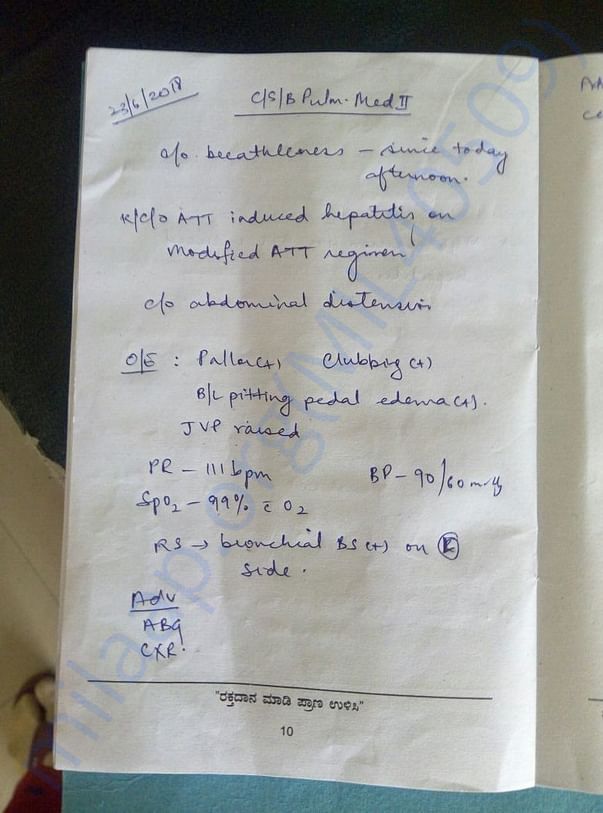 23/6/2018
C/S/B Pulm. Med II
c/o. breathlessness – since today
afternoon.
K/C/O ATT induced hepatitis on
Modified ATT regimen
c/o abdominal distension
O/E : Pallor(+) Clubbing(+)
B/L pitting pedal edema(+).
JVP raised
PR – 111 bpm BP – 90/60 mmHg
SpO2 – 99% c̄ O2
RS → bronchial BS(+) on
side.
Adv
ABG
CXR
"ರಕ್ತದಾನ ಮಾಡಿ ಪ್ರಾಣ ಉಳಿಸಿ"
10